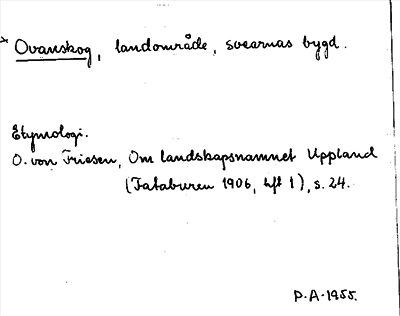 × Ovanskog, landområde, svearnas bygd.
Etymologi.
O. von Friesen, Om landskapsnamnet Uppland
(Fataburen 1906, hft 1), s. 24.
P.A. 1955.